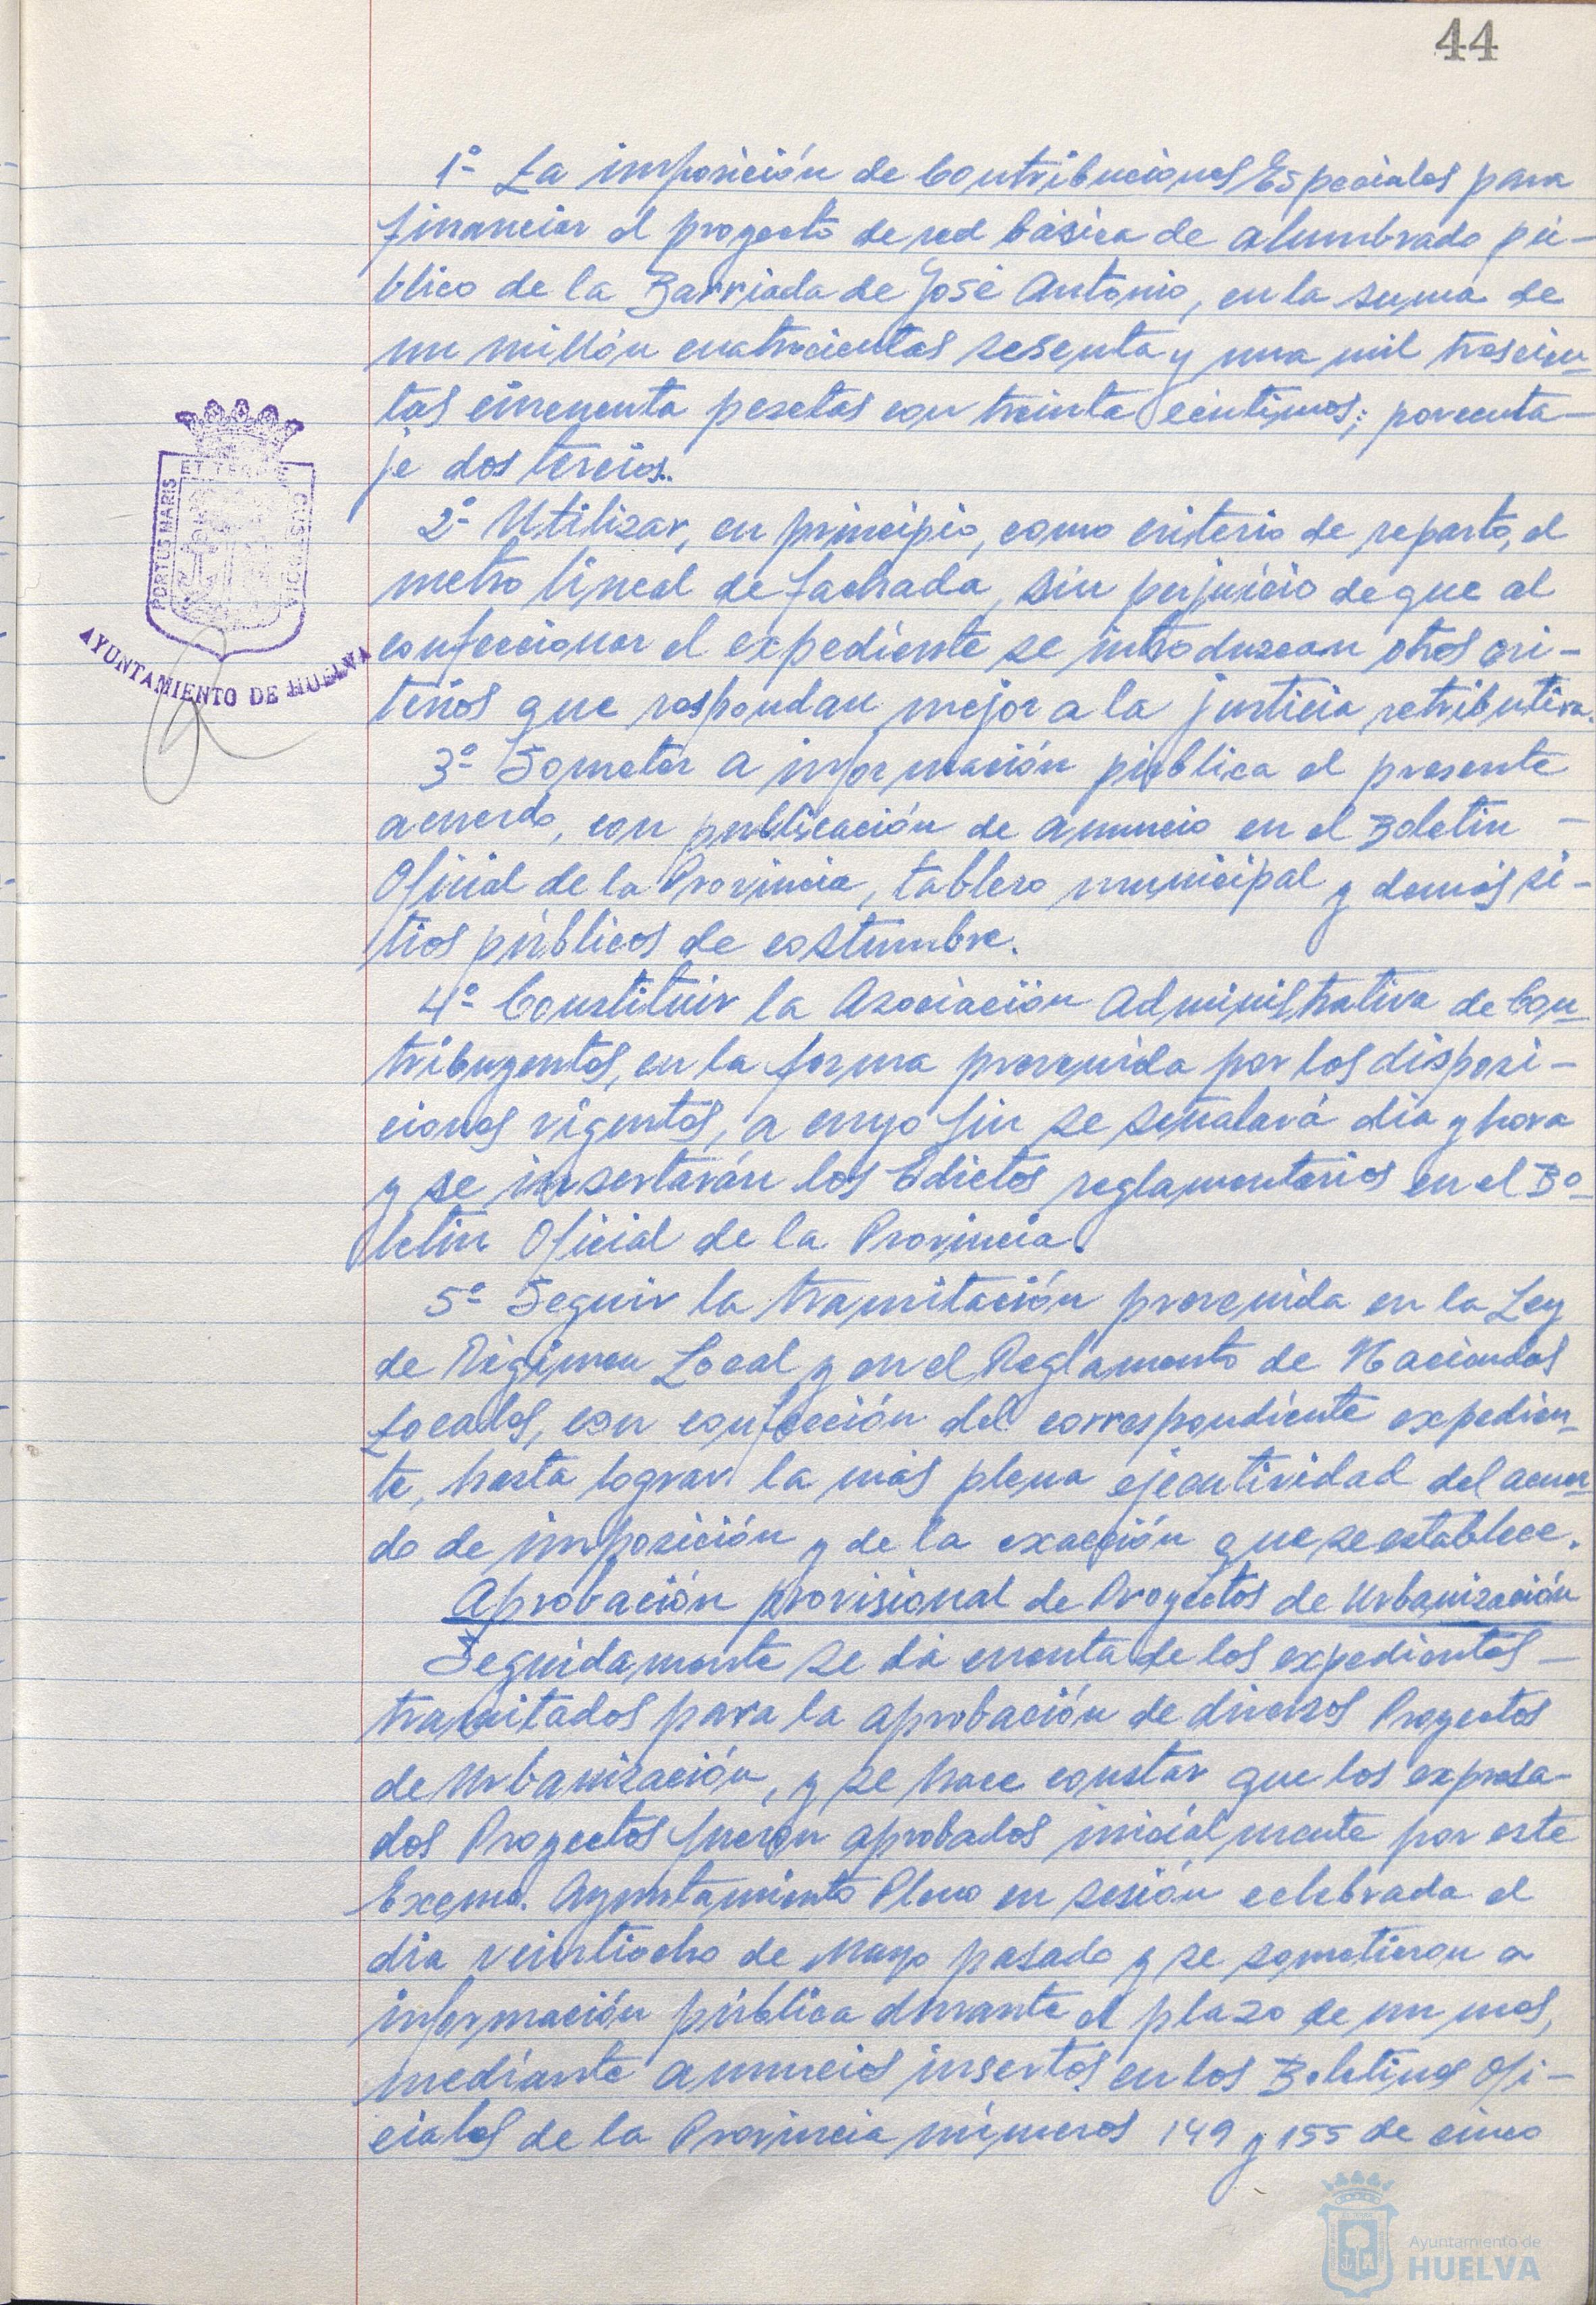 44
1º La imposición de Contribuciones Especiales para
financiar el proyecto de red básica de alumbrado pú-
blico de la Barriada de José Antonio, en la suma de
un millón cuatrocientas sesenta y una mil trescien-
tas cincuenta pesetas con treinta céntimos; porcenta-
je dos tercios.
2º Utilizar, en principio, como criterio de reparto, el
metro lineal de fachada, sin perjuicio de que al
confeccionar el expediente se introduzcan otros cri-
terios que respondan mejor a la justicia retributiva.
3º Someter a información pública el presente
acuerdo, con publicación de anuncio en el Boletín -
Oficial de la Provincia, tablero municipal y demás si-
tios públicos de costumbre.
4º Constituir la Asociación Administrativa de Con-
tribuyentes, en la forma prevenida por los disposi-
ciones vigentes, a cuyo fin se señalará día y hora
y se insertarán los Edictos reglamentarios en el Bo-
letín Oficial de la Provincia.
5º Seguir la tramitación prevenida en la Ley
de Régimen Local y en el Reglamento de Haciendas
Locales, con confección del correspondiente expedien-
te, hasta lograr la más plena ejecutividad del acuer-
do de imposición y de la exacción que se establece.
Aprobación provisional de Proyectos de Urbanización
Seguidamente se da cuenta de los expedientes -
tramitados para la aprobación de diversos Proyectos
de Urbanización, y se hace constar que los expresa-
dos Proyectos fueron aprobados inicialmente por este
Excmo. Ayuntamiento Pleno en sesión celebrada el
día veintiocho de Mayo pasado y se sometieron a
información pública durante el plazo de un mes,
mediante anuncios insertos en los Boletines Ofi-
ciales de la Provincia números 149 y 155 de cinco
PORTUS MARIS
ET TERRAE
CUSTODIA
AYUNTAMIENTO DE HUELVA
Ayuntamiento de
HUELVA